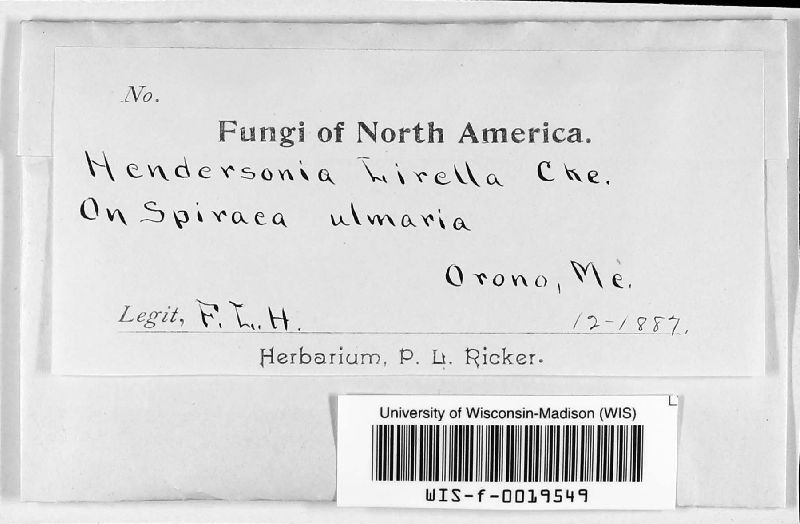 No.
Fungi of North America.
Hendersonia Lirella Cke.
On Spiraea ulmaria
Orono, Me.
Legit, F. L. H. 12-1887.
Herbarium, P. L. Ricker.
University of Wisconsin-Madison (WIS)
WIS-f-0019549